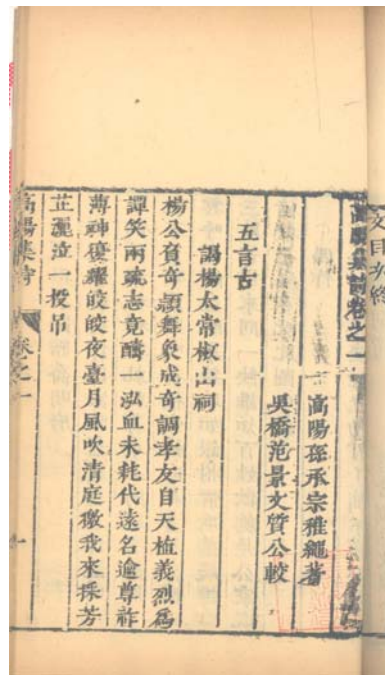 文目次終
高陽集詩卷之一
高陽孫承宗稚繩著
吳橋范景文質公較
五言古
謁楊太常椒山祠
楊公負奇頴舞象成奇調孝友自天植義烈爲
譚笑兩疏志竟醻一泓血未耗代遠名逾尊祚
薄神優耀皎皎夜臺月風吹清庭徼我來採芳
芷灑泣一投吊
高陽集詩 卷之一 一